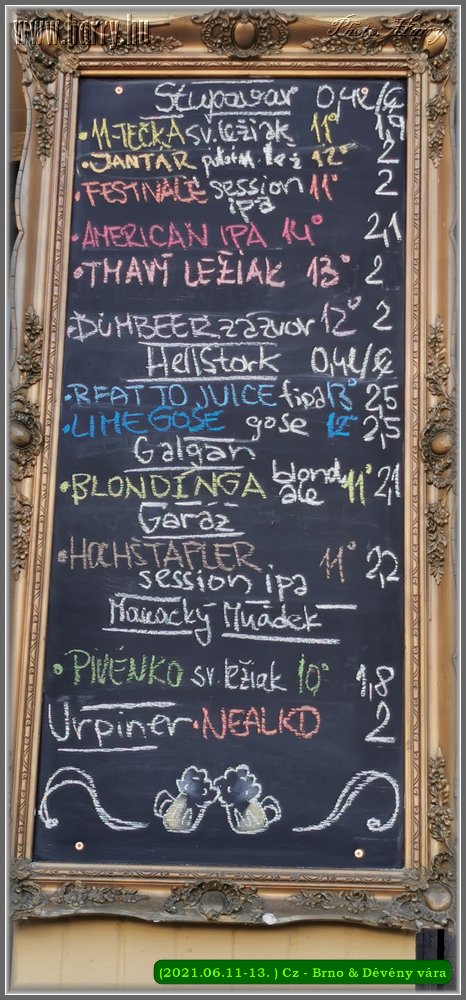 www.harry.hu
Photo: Harry
Stupavar 0,4l/€
• M-TEČKA sv. ležiak 11° 1,9
• JANTAR polotm. lež 12° 2
• FESTIVALE session ipa 11° 2
• AMERICAN IPA 14° 2,1
• TMAVÝ LEŽIAK 13° 2
• ĎUMBEER zázvor 12° 2
HellStork 0,4l/€
• BEAT TO JUICE fipa 13° 2,5
• LIME GOSE gose 12° 2,5
Galgan
• BLONDINGA blond ale 11° 2,1
Garáž
• HOCHŠTAPLER 11° 2,2
session ipa
Mládek
• PIVÉNKO sv. ležiak 10° 1,8
Urpiner • NEALKO 2
(2021.06.11-13. ) Cz - Brno & Dévény vára